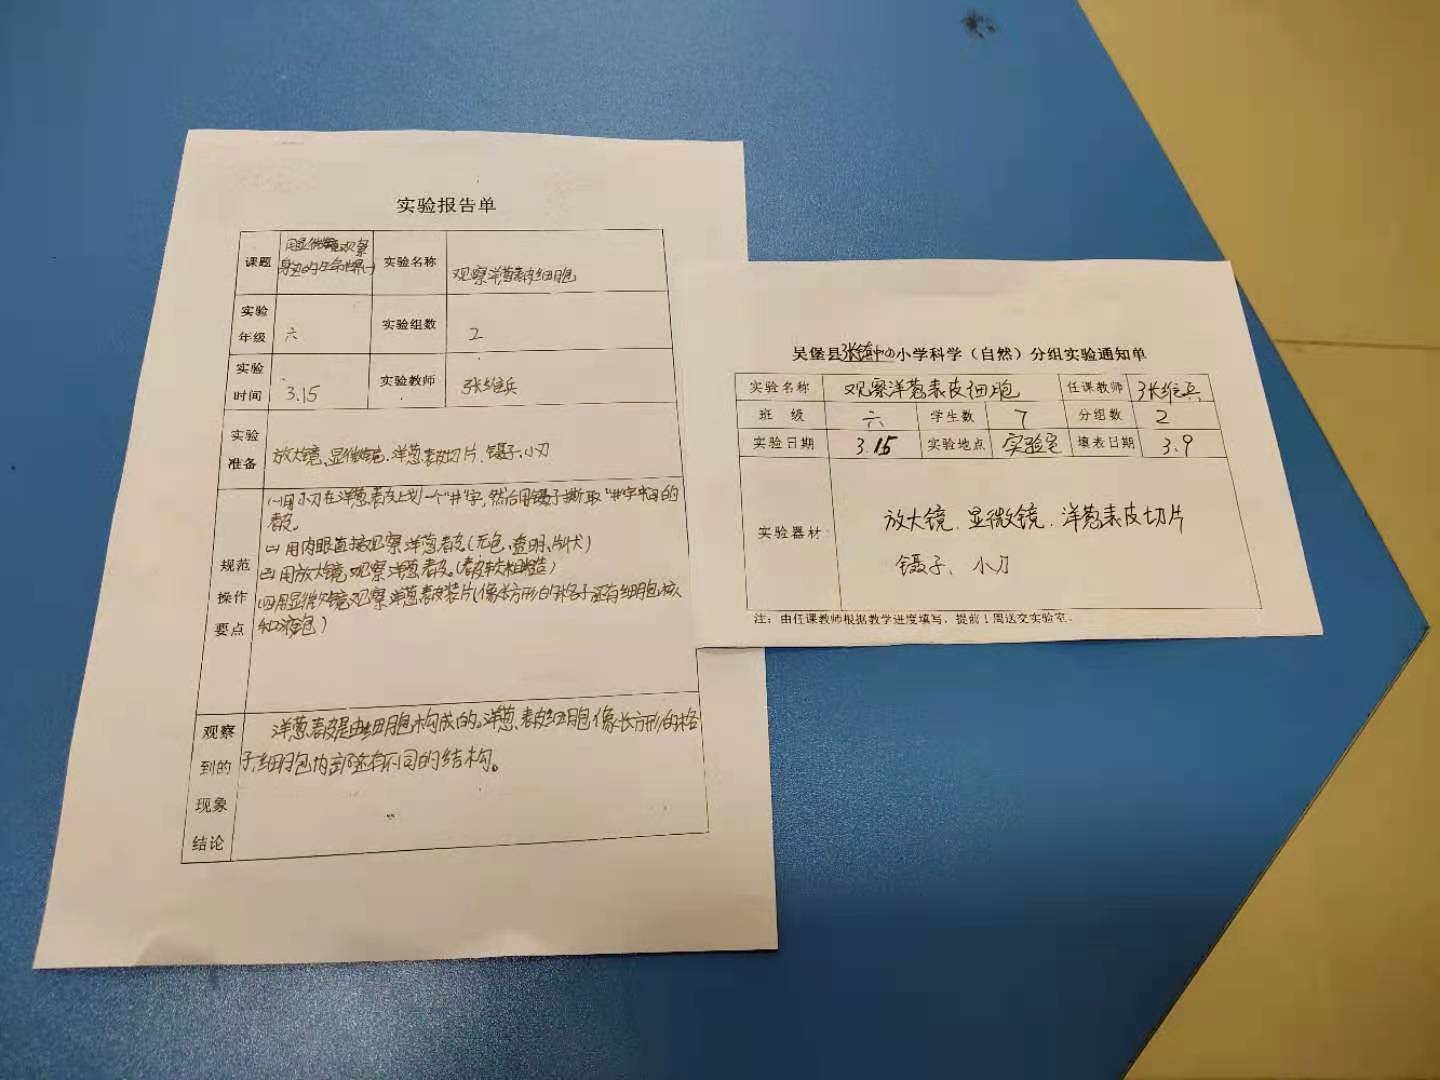 实验报告单
课题 用显微镜观察 实验名称 观察洋葱表皮细胞
身边的生命世界(一)
实验年级 六 实验组数 2
实验时间 3.15 实验教师 张维兵
实验准备 放大镜、显微镜、洋葱表皮切片、镊子、小刀
规范操作要点
(一)用小刀在洋葱表皮上划一个"井"字,然后用镊子撕取"井"字中间的
表皮。
(二)用肉眼直接观察洋葱表皮。(无色、透明、片状)
(三)用放大镜观察洋葱表皮。(表皮较粗糙)
(四)用显微镜观察洋葱表皮装片(像长方形的格子还有细胞核
和液包)
观察到的现象结论
洋葱表皮是由细胞构成的。洋葱表皮细胞像长方形的格
子,细胞内部还有不同的结构。
吴堡县张家山中心小学科学(自然)分组实验通知单
实验名称 观察洋葱表皮细胞 任课教师 张维兵
班级 六 学生数 7 分组数 2
实验日期 3.15 实验地点 实验室 填表日期 3.9
实验器材 放大镜、显微镜、洋葱表皮切片
镊子、小刀
注:由任课教师根据教学进度填写,提前1周送交实验室。